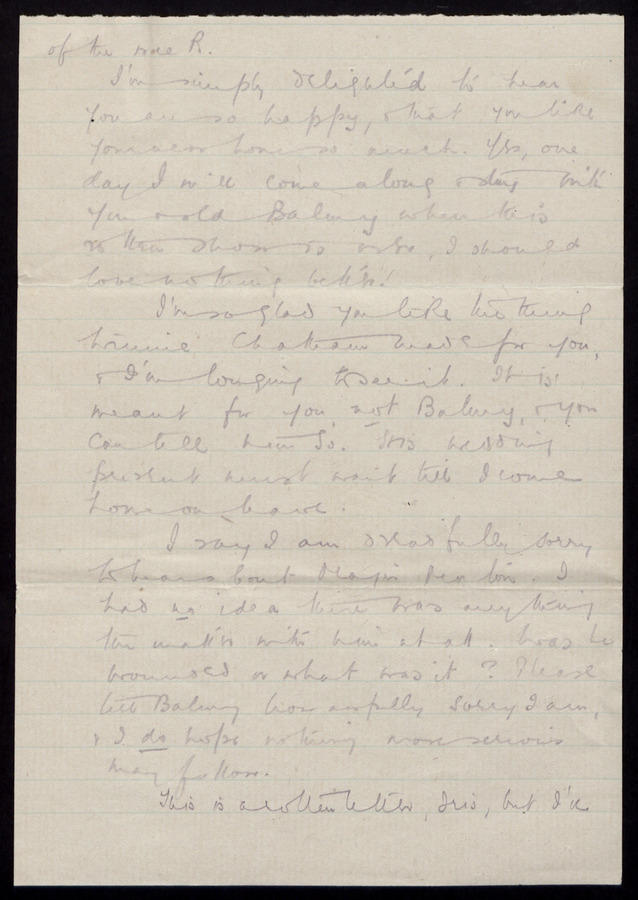 of the mae R.
I'm simply delighted to hear
you are so happy, & that you like
your new home so much. Yes, one
day I will come along & stay with
you & old Balmy when this
rotten show is over, I should
love nothing better!
I'm so glad you like the thing
Winnie Chattam made for you,
& I'm longing to see it. It is
meant for you, not Balmy, & you
can tell him so. His wedding
present must wait till I come
home on leave.
I say I am dreadfully sorry
to hear about
had no idea there was anything
the matter with him at all. Was he
wounded or what was it? Please
tell Balmy how awfully sorry I am,
& I do hope nothing more serious
may follow.
This is a rotten letter, Iris, but I'll